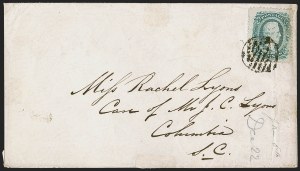 Miss Rachel Lyons
Care of Mr J. C. Lyons
Columbia
S.C.